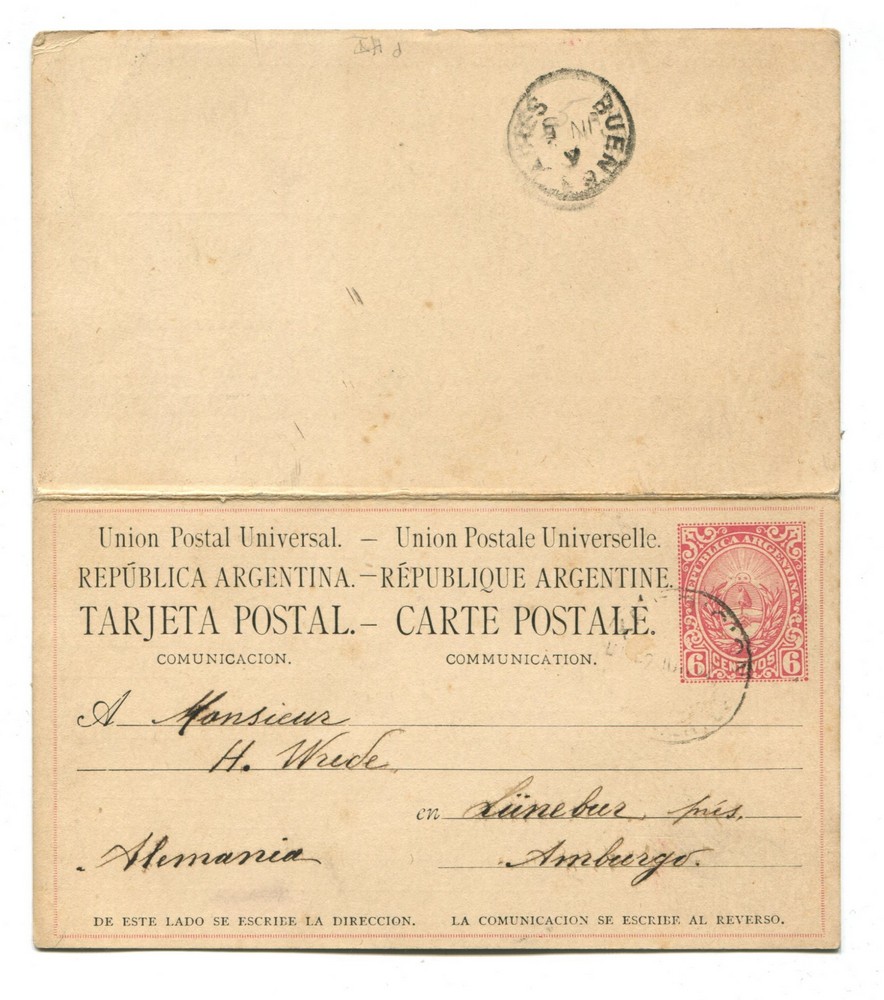 BUENOS AIRES
Union Postal Universal. — Union Postale Universelle.
REPÚBLICA ARGENTINA. — RÉPUBLIQUE ARGENTINE.
TARJETA POSTAL. — CARTE POSTALE.
COMUNICACION. COMMUNICATION.
REPUBLICA ARGENTINA
6 CENTAVOS 6
A Monsieur
H. Wrede
en Lünebur, prés.
Alemania Amburgo.
DE ESTE LADO SE ESCRIBE LA DIRECCION. LA COMUNICACION SE ESCRIBE AL REVERSO.